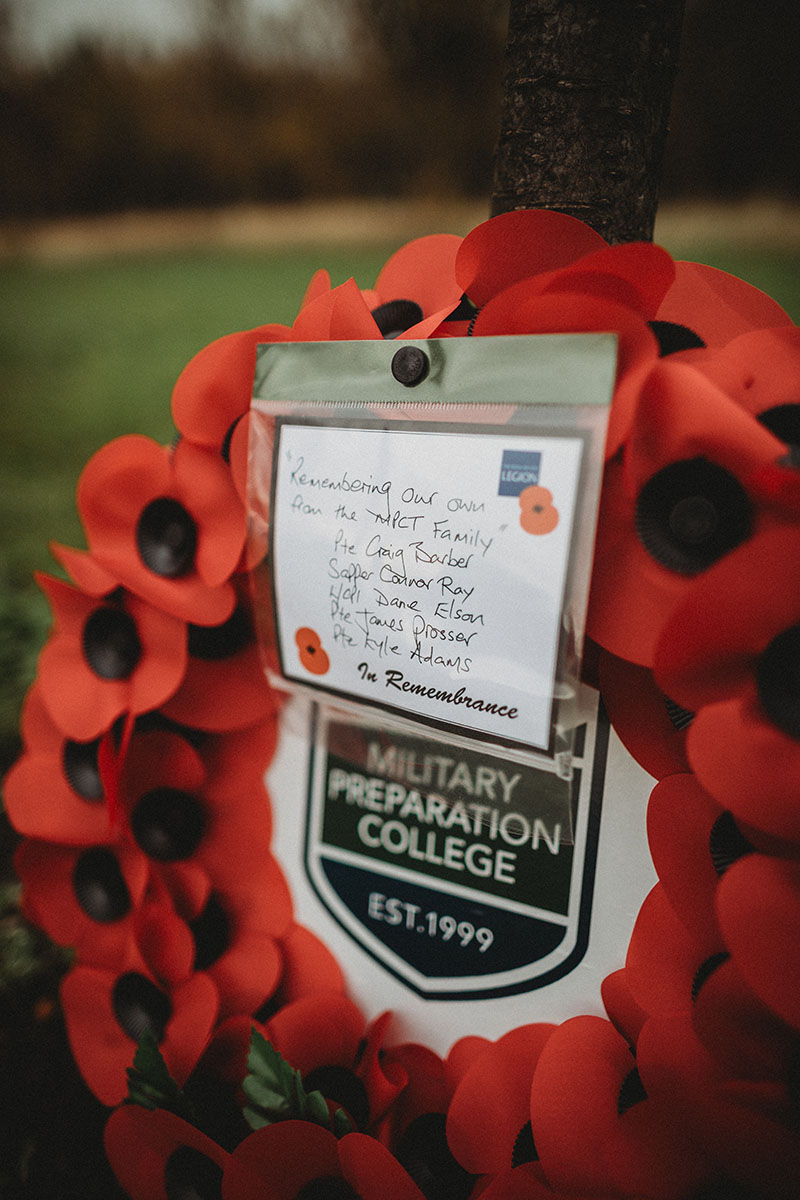 "Remembering our own
from the MPCT Family"
Pte Craig Barber
Sapper Connor Ray
Pte James Prosser
Pte Kyle Adams
In Remembrance
LEGION
MILITARY
PREPARATION
COLLEGE
EST.1999